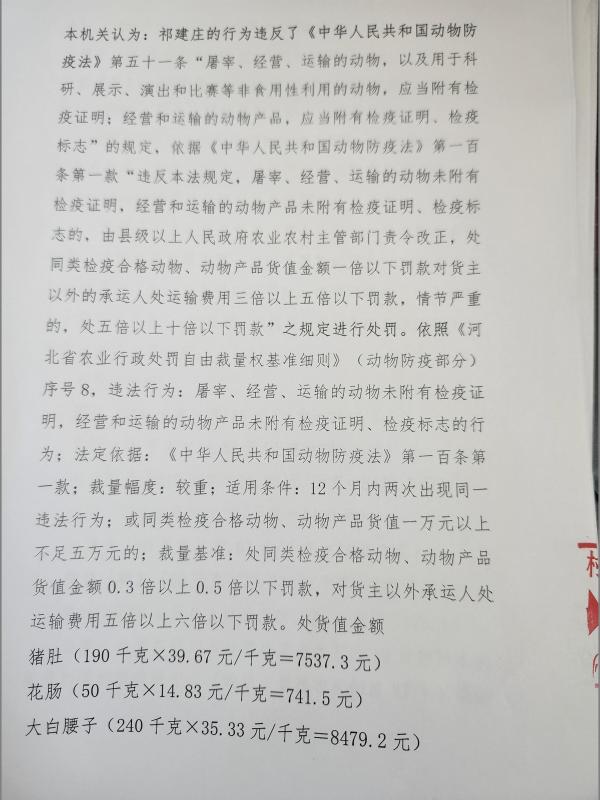 本机关认为：祁建庄的行为违反了《中华人民共和国动物防
疫法》第五十一条“屠宰、经营、运输的动物，以及用于科
研、展示、演出和比赛等非食用性利用的动物，应当附有检
疫证明；经营和运输的动物产品，应当附有检疫证明、检疫
标志”的规定，依据《中华人民共和国动物防疫法》第一百
条第一款“违反本法规定，屠宰、经营、运输的动物未附有
检疫证明，经营和运输的动物产品未附有检疫证明、检疫标
志的，由县级以上人民政府农业农村主管部门责令改正，处
同类检疫合格动物、动物产品货值金额一倍以下罚款对货主
以外的承运人处运输费用三倍以上五倍以下罚款，情节严重
的，处五倍以上十倍以下罚款”之规定进行处罚。依照《河
北省农业行政处罚自由裁量权基准细则》（动物防疫部分）
序号8，违法行为：屠宰、经营、运输的动物未附有检疫证
明，经营和运输的动物产品未附有检疫证明、检疫标志的行
为；法定依据：《中华人民共和国动物防疫法》第一百条第
一款；裁量幅度：较重；适用条件：12个月内两次出现同一
违法行为；或同类检疫合格动物、动物产品货值一万元以上
不足五万元的；裁量基准：处同类检疫合格动物、动物产品
货值金额0.3倍以上0.5倍以下罚款，对货主以外承运人处
运输费用五倍以上六倍以下罚款。处货值金额
猪肚（190千克×39.67元/千克＝7537.3元）
花肠（50千克×14.83元/千克＝741.5元）
大白腰子（240千克×35.33元/千克＝8479.2元）